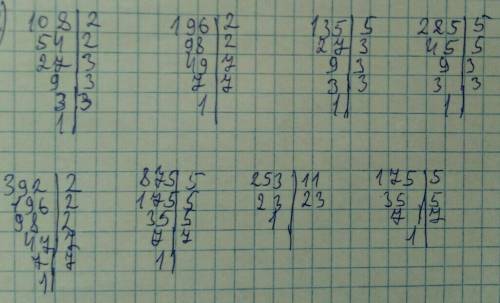 108|2 196|2 135|5 225|5
54|2 98|2 27|3 45|5
27|3 49|7 9|3 9|3
9|3 7|7 3|3 3|3
3|3 1| 1| 1|
1|
392|2 875|5 253|11 175|5
196|2 175|5 23|23 35|5
98|2 35|5 1| 7|7
47|7 7|7 1|
7|7 1|
1|